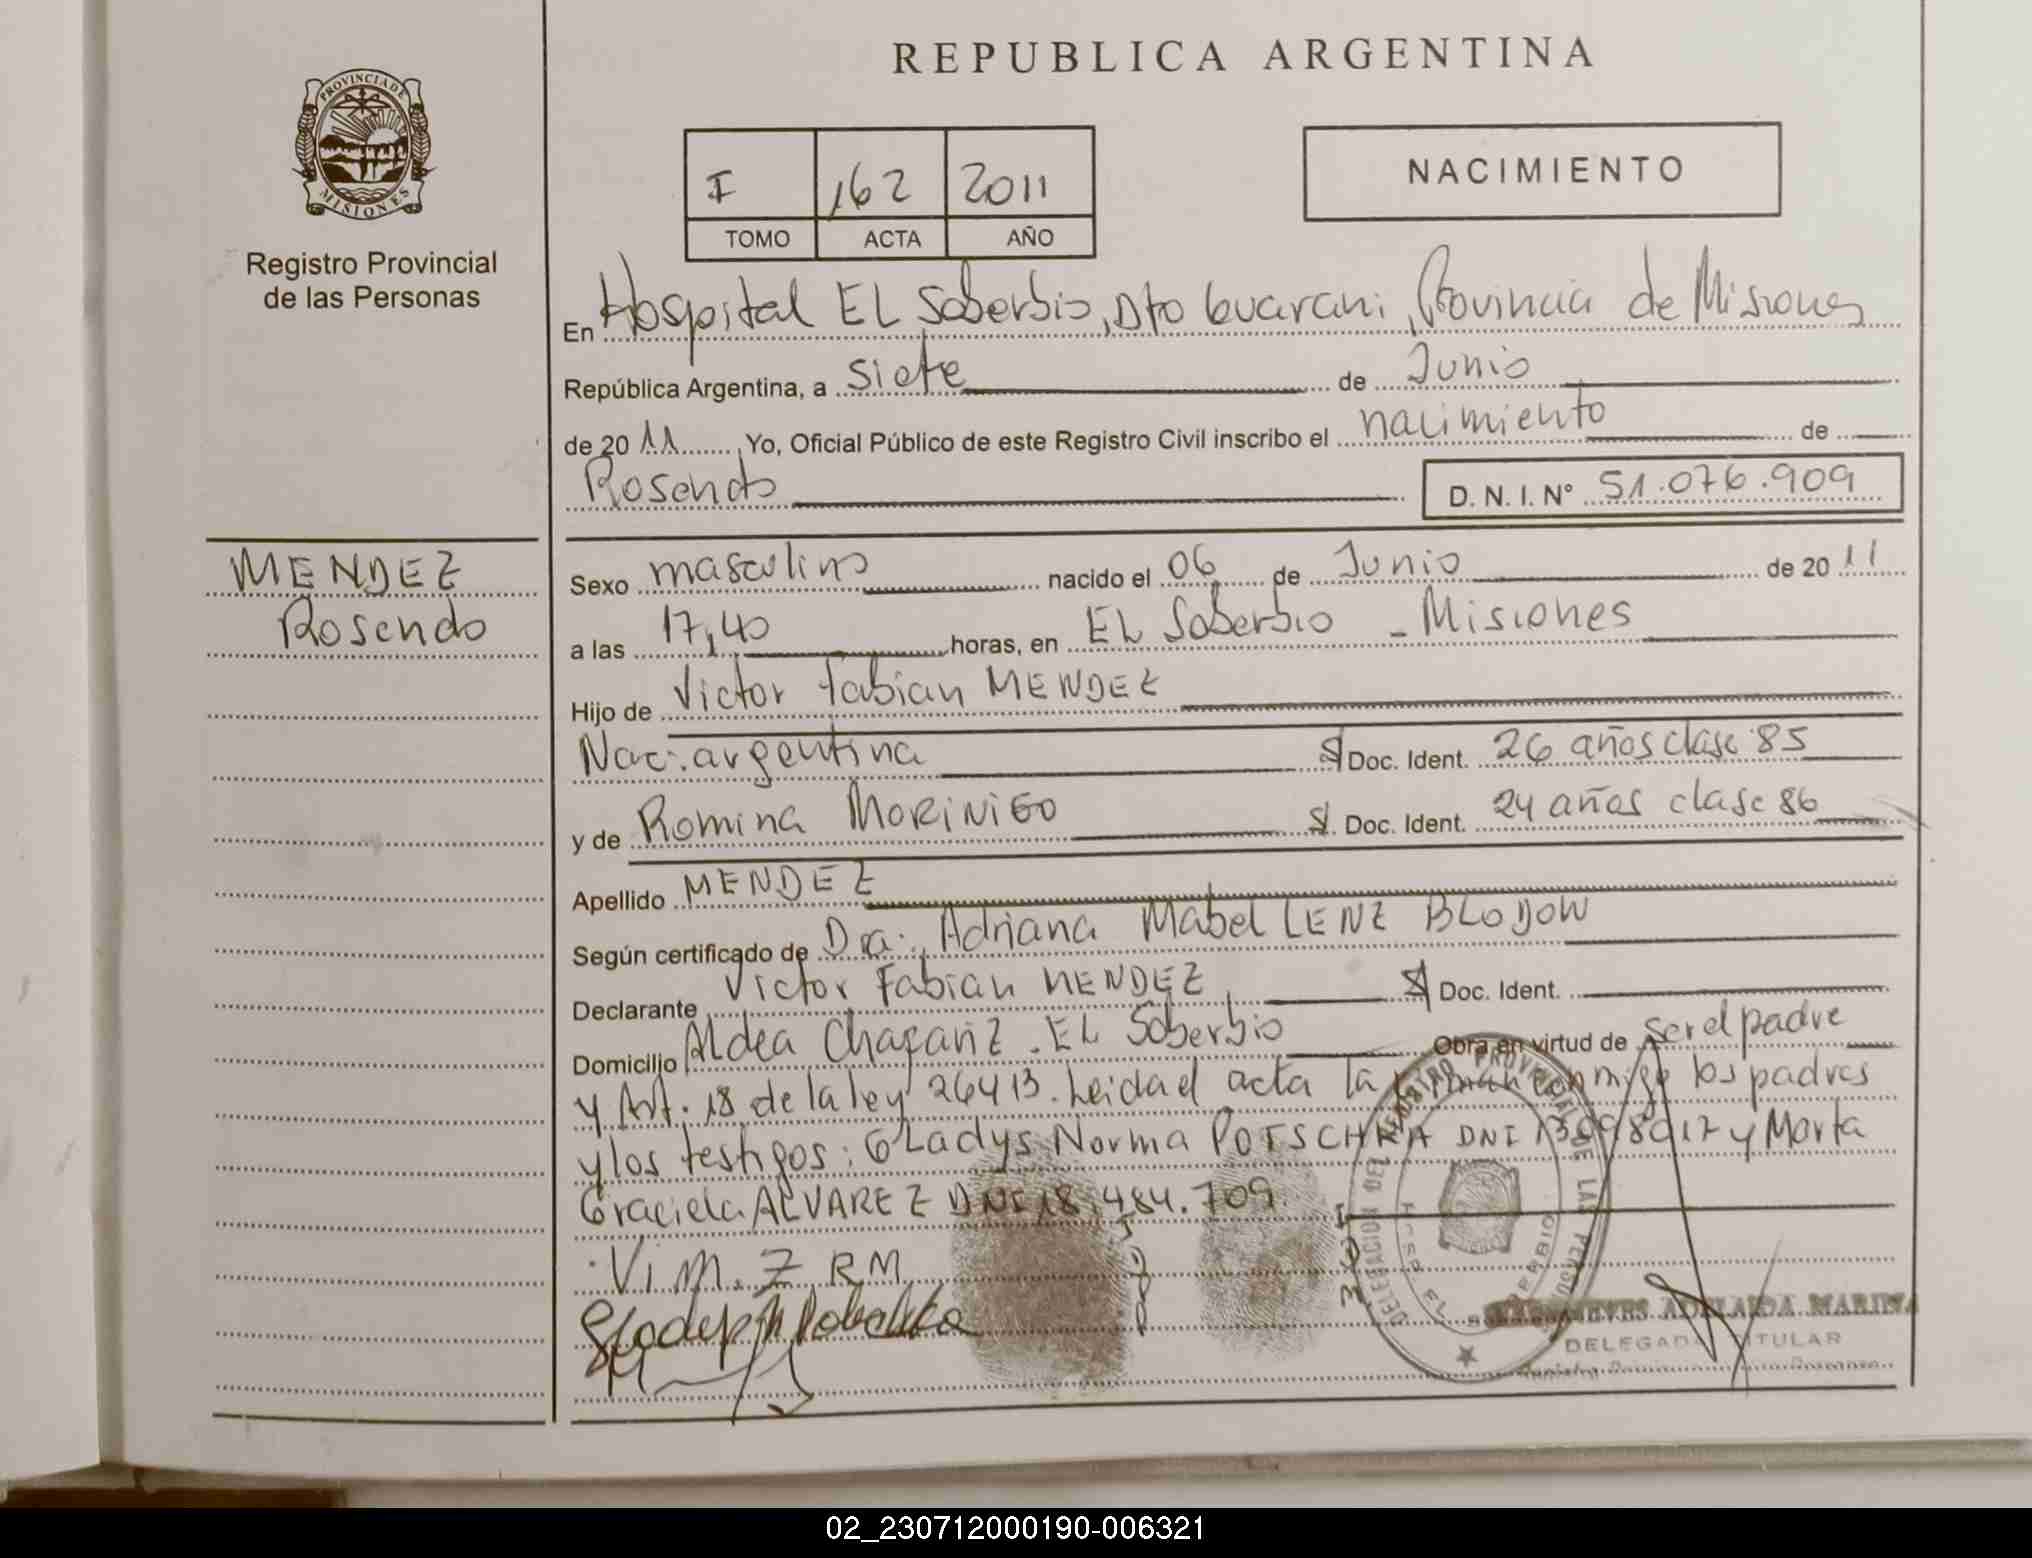 REPUBLICA ARGENTINA
PROVINCIA DE
MISIONES
Registro Provincial
de las Personas
I 162 2011
TOMO ACTA AÑO
NACIMIENTO
En Hospital EL Soberbio, Dto Guarani, Provincia de Misiones
República Argentina, a siete de Junio
de 20 11 Yo, Oficial Público de este Registro Civil inscribo el nacimiento de
Rosendo D. N. I. N° 51.076.909
MENDEZ
Rosendo
Sexo masculino nacido el 06 de Junio de 20 11
a las 17,40 horas, en EL Soberbio - Misiones
Hijo de Victor Fabian MENDEZ
Nac. argentina S/ Doc. Ident. 26 años clase 85
y de Romina MORINIGO S/ Doc. Ident. 24 años clase 86
Apellido MENDEZ
Según certificado de Dra. Adriana Mabel LENZ BLODOW
Declarante Victor Fabian MENDEZ S/ Doc. Ident.
Domicilio Aldea Chafariz . EL Soberbio Obra en virtud de ser el padre
y Art. 18 de la ley 26413. Leida el acta la firman conmigo los padres
y los testigos: Gladys Norma POTSCHKA DNI y Marta
Graciela ALVAREZ DNI 18.484.709
V.M.Z RM
REGISTRO PROVINCIAL DE LAS PERSONAS
DELEGACION DEL
HOSP. EL SOBERBIO
NIEVES ADELAIDA MARINA
DELEGADA TITULAR
02_230712000190-006321